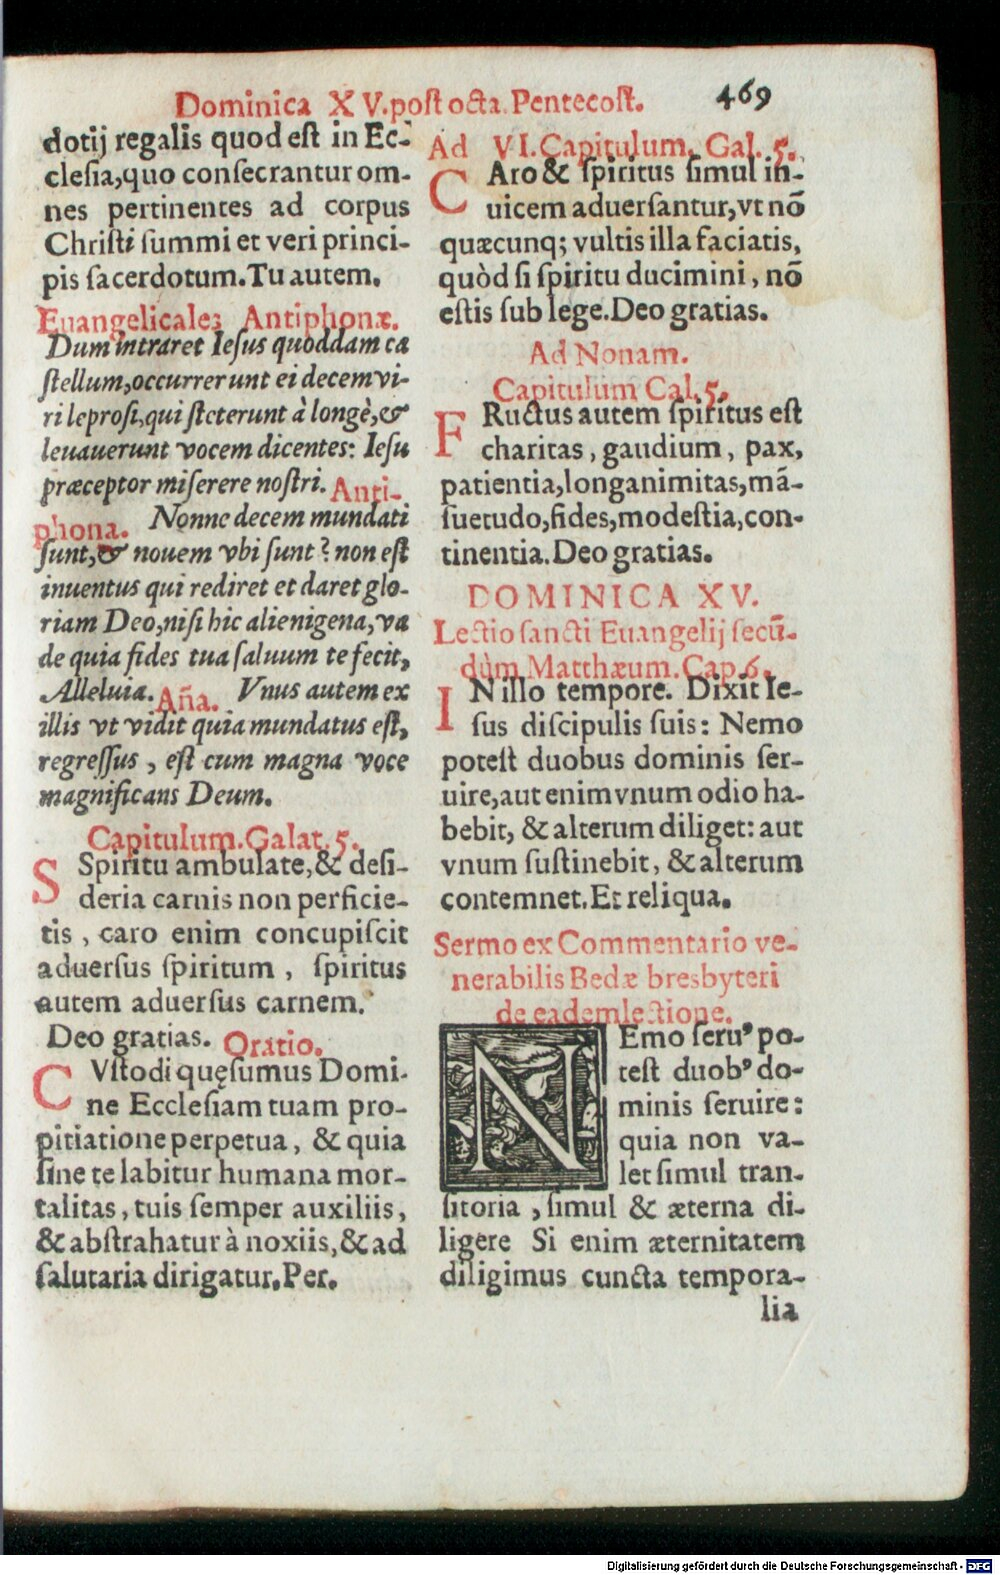 Dominica XV. post octa. Pentecost. 469
dotij regalis quod est in Ec-
clesia, quo consecrantur om-
nes pertinentes ad corpus
Christi summi et veri princi-
pis sacerdotum. Tu autem.
Euangelicales Antiphonæ.
Dum intraret Iesus quoddam ca
stellum, occurrerunt ei decem vi-
ri leprosi, qui steterunt à longè, &
leuauerunt vocem dicentes: Iesu
præceptor miserere nostri. Anti-
phona. Nonne decem mundati
sunt, & nouem vbi sunt? non est
inuentus qui rediret et daret glo-
riam Deo, nisi hic alienigena, va
de quia fides tua saluum te fecit,
Alleluia. Aña. Vnus autem ex
illis vt vidit quia mundatus est,
regressus, est cum magna voce
magnificans Deum.
Capitulum. Galat. 5.
SSpiritu ambulate, & desi-
deria carnis non perficie-
tis, caro enim concupiscit
aduersus spiritum, spiritus
autem aduersus carnem.
Deo gratias. Oratio.
CVstodi quęsumus Domi-
ne Ecclesiam tuam pro-
pitiatione perpetua, & quia
sine te labitur humana mor-
talitas, tuis semper auxiliis,
& abstrahatur à noxiis, & ad
salutaria dirigatur. Per.
Ad VI. Capitulum. Gal. 5.
CAro & spiritus simul in-
uicem aduersantur, vt nō
quæcunq; vultis illa faciatis,
quòd si spiritu ducimini, nō
estis sub lege. Deo gratias.
Ad Nonam.
Capitulum Cal. 5.
FRuctus autem spiritus est
charitas, gaudium, pax,
patientia, longanimitas, mā-
suetudo, fides, modestia, con-
tinentia. Deo gratias.
DOMINICA XV.
Lectio sancti Euangelij secū-
dùm Matthæum. Cap. 6.
IN illo tempore. Dixit Ie-
sus discipulis suis: Nemo
potest duobus dominis ser-
uire, aut enim vnum odio ha-
bebit, & alterum diliget: aut
vnum sustinebit, & alterum
contemnet. Et reliqua.
Sermo ex Commentario ve-
nerabilis Bedæ bresbyteri
de eadem lectione.
NEmo seru⁹ po-
test duob⁹ do-
minis seruire:
quia non va-
let simul tran-
sitoria, simul & æterna di-
ligere Si enim æternitatem
diligimus cuncta tempora-
lia
Digitalisierung gefördert durch die Deutsche Forschungsgemeinschaft - DFG